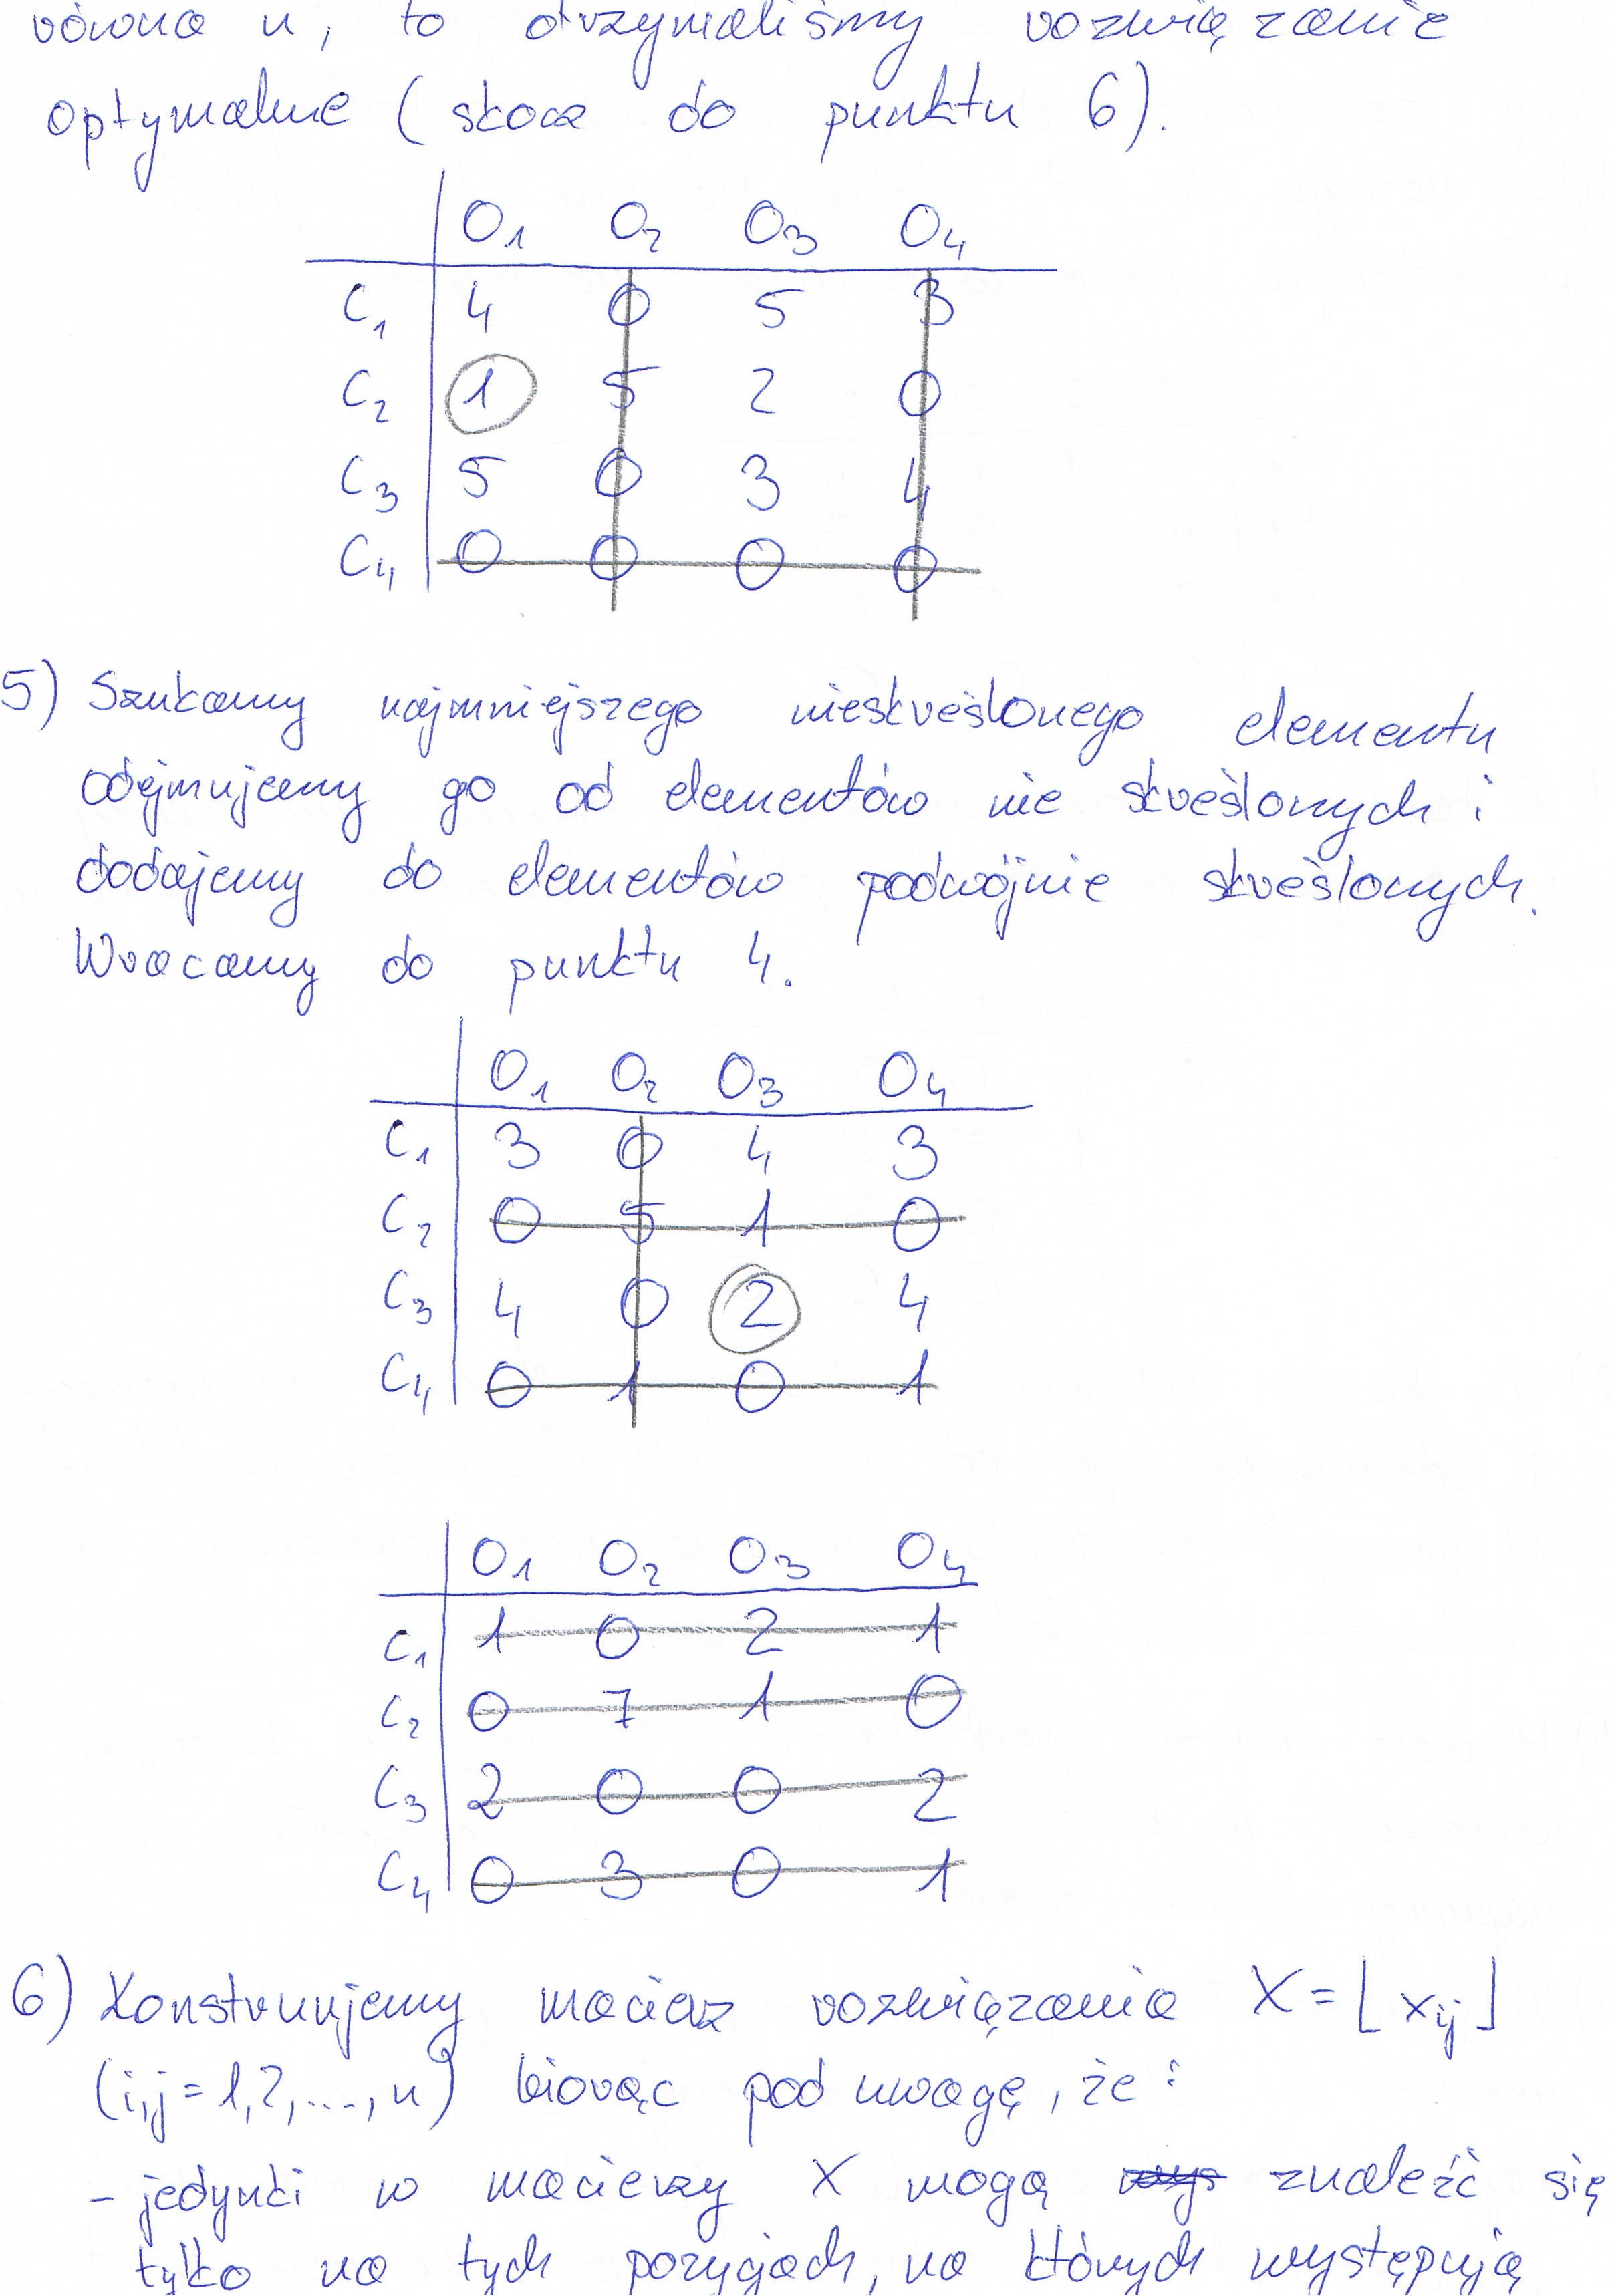 równa n, to otrzymaliśmy rozwiązanie
optymalne (skocz do punktu 6).
O₁ O₂ O₃ O₄
C₁ 4 0 5 3
C₂ 1 5 2 0
C₃ 5 0 3 4
C₄ 0 0 0 0
5) Szukamy najmniejszego nieskreślonego elementu
odejmujemy go od elementów nie skreślonych i
dodajemy do elementów podwójnie skreślonych.
Wracamy do punktu 4.
O₁ O₂ O₃ O₄
C₁ 3 0 4 3
C₂ 0 5 1 0
C₃ 4 0 2 4
C₄ 0 1 0 1
O₁ O₂ O₃ O₄
C₁ 1 0 2 1
C₂ 0 7 1 0
C₃ 2 0 0 2
C₄ 0 3 0 1
6) Konstruujemy macierz rozwiązania X = [xij]
(i,j = 1,2,...,n) biorąc pod uwagę, że:
- jedynki w macierzy X mogą znaleźć się
tylko na tych pozycjach, na których występują